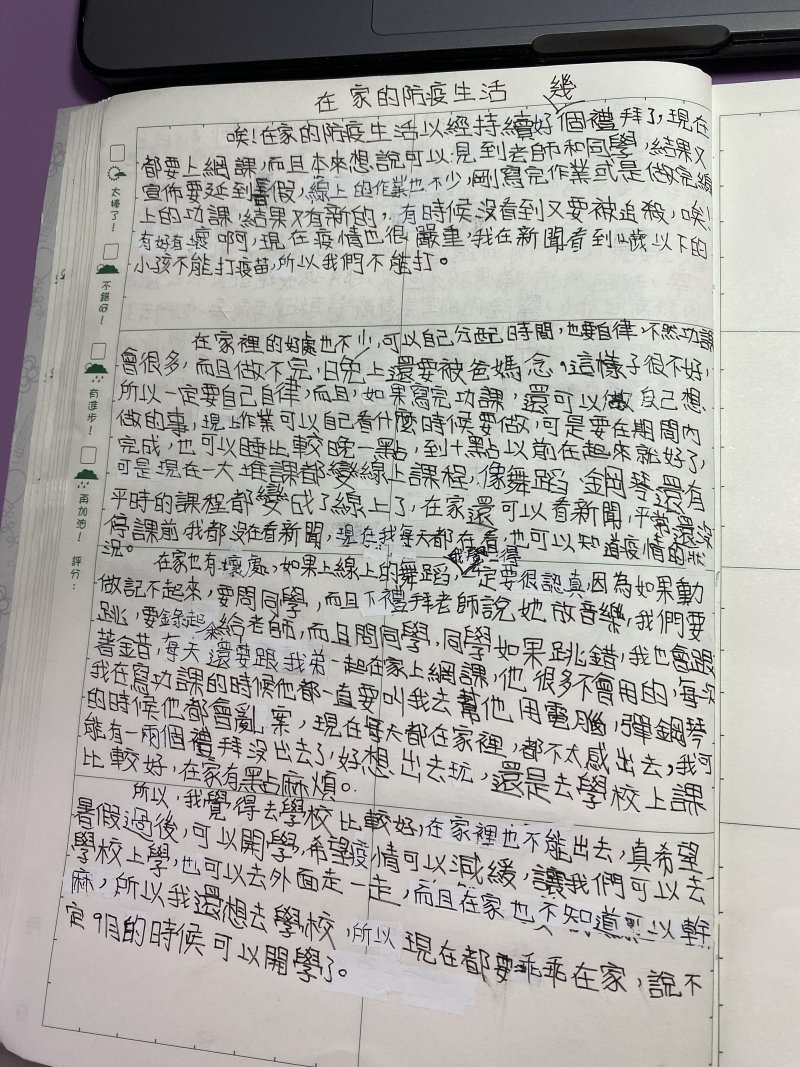 在家的防疫生活
幾
唉!在家的防疫生活以經持續好個禮拜了,現在
都要上網課,而且本來想說可以見到老師和同學,結果又
宣佈要延到暑假,線上的作業也不少,剛寫完作業或是做完線
上的功課,結果又有新的,有時候沒看到又要被追殺,唉!
有好有壞啊,現在疫情也很嚴重,我在新聞看到歲以下的
小孩不能打疫苗,所以我們不能打。
在家裡的好處也不少,可以自己分配時間,也要自律,不然功課
會很多,而且做不完,晚上還要被爸媽念,這樣子很不好,
所以一定要自己自律,而且,如果寫完功課,還可以做自己想
做的事,現上作業可以自己看什麼時候要做,可是要在期間內
完成,也可以睡比較晚一點,到十點以前在起來就好了,
可是現在一大堆課都變線上課程,像舞蹈、鋼琴還有
平時的課程都變成了線上了,在家還可以看新聞,平常還沒
停課前我都沒在看新聞,現在我每天都在看,也可以知道疫情的狀
況。
我覺得
在家也有壞處,如果上線上的舞蹈,一定要很認真,因為如果動
做記不起來,要問同學,而且下禮拜老師說她放音樂,我們要
跳,要錄起來給老師,而且問同學,同學如果跳錯,我也會跟
著錯,每天還要跟我弟一起在家上網課,他很多不會用的,每次
我在寫功課的時候他都一直要叫我去幫他用電腦,彈鋼琴
的時候他都會亂案,現在每天都在家裡,都不太感出去,我可
能有一兩個禮拜沒出去了,好想出去玩,還是去學校上課
比較好,在家有點麻煩。
所以,我覺得去學校比較好,在家裡也不能出去,真希望
暑假過後,可以開學,希望疫情可以減緩,讓我們可以去
學校上學,也可以去外面走一走,而且在家也不知道以幹
麻,所以我還想去學校,所以現在都要乖乖在家,說不
定9月的時候可以開學了。
太棒了!
不錯呀!
有進步!
再加油!
評分: